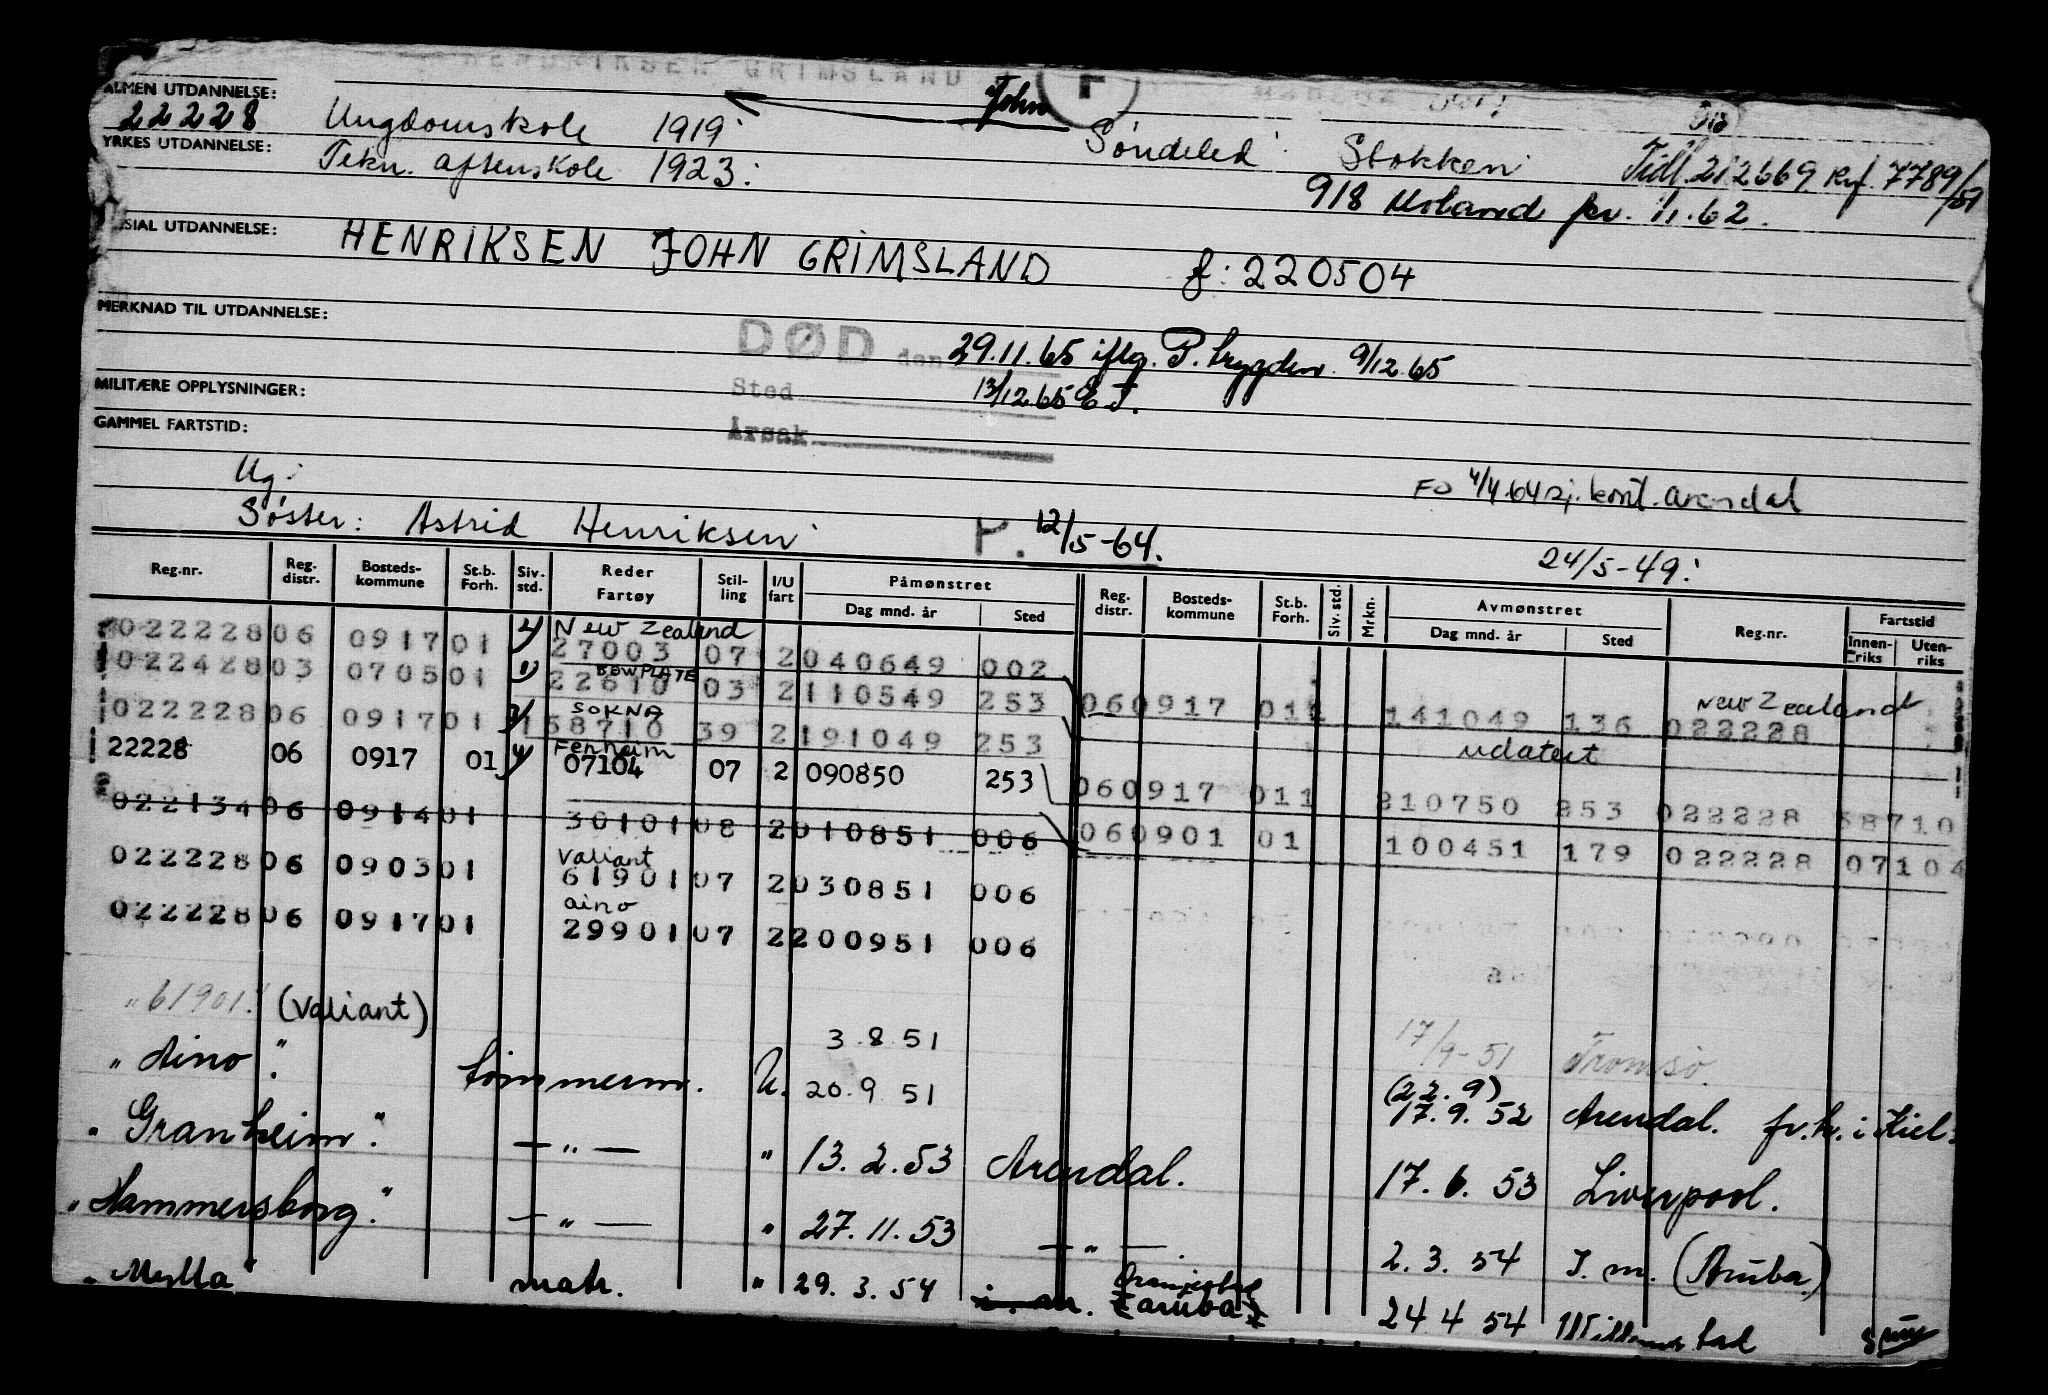 HENDRIKSEN GRIMSLAND
ALMEN UTDANNELSE:
22228 Ungdomskole 1919. John Søndeled Stokken Tidl. 212669 Ref. 7789/51
YRKES UTDANNELSE: Tekn. aftenskole 1923. 918 Moland fv. 1/1.62.
SIAL UTDANNELSE: HENRIKSEN JOHN GRIMSLAND f: 220504
MERKNAD TIL UTDANNELSE:
DØD den 29.11.65 iflg. P. trygden. 9/12.65
MILITÆRE OPPLYSNINGER: Sted 13/12.65 E.J.
GAMMEL FARTSTID: Årsak
Ug. FO 4/4.64 sj. kont. Arendal
Søster: Astrid Henriksen 12/5-64. 24/5-49.
Reg.nr. Reg. distr. Bosteds-kommune St.b. Forh. Siv. std. Reder Fartøy Stil-ling I/U fart Påmønstret Dag mnd. år Sted Reg. distr. Bosteds-kommune St.b. Forh. Siv. std. Mrkn. Avmønstret Dag mnd. år Sted Reg.nr. Fartstid Innen-riks Uten-riks
New Zealand
022228 06 0917 01 27003 07 2 040649 002
BOWPLATE
022428 03 0705 01 22610 03 2 110549 253 06 0917 011 141049 136 022228 New Zealand
SOKNA
022228 06 0917 01 58710 39 2 191049 253 udatert
Fernheim
22228 06 0917 01 07104 07 2 090850 253 06 0917 011 210750 253 022228 58710
022134 06 0914 01 30101 08 2 010851 006 06 0901 01 100451 179 022228 07104
Valiant
022228 06 0903 01 61901 07 2 030851 006
aino
022228 06 0917 01 29901 07 2 200951 006
"61901." (Valiant) 3.8.51 17/9-51 Tromsø.
"Aino". tømmerm. U. 20.9 51 (22.9) 17.9.52 Arendal. fv.h. i Kiel.
"Granheim." — " — " 13.2.53 Arendal. 17.6.53 Liverpool.
"Hammersborg." — " — " 27.11.53 — " —. 2.3.54 I.m. (Aruba)
"Mylla" matr. " 29.3.54 Oranjestad (aruba) 24.4 54 Willemstad